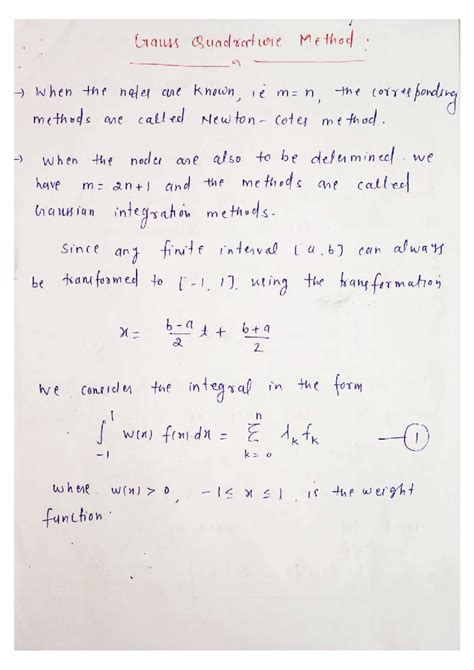 Gauss Quadrature Method :
→ When the nodes are known, ie m=n, the corresponding
methods are called Newton-Cotes method.
→ when the nodes are also to be determined we
have m= 2n+1 and the methods are called
Gaussian integration methods.
Since any finite interval [a,b] can always
be transformed to [-1, 1], using the transformation
x= \frac{b-a}{2} t + \frac{b+a}{2}
We consider the integral in the form
\int_{-1}^{1} w(x) f(x).dx = \sum_{k=0}^{n} λ_k f_k —①
where w(x) > 0, -1 ≤ x ≤ 1, is the weight
function.